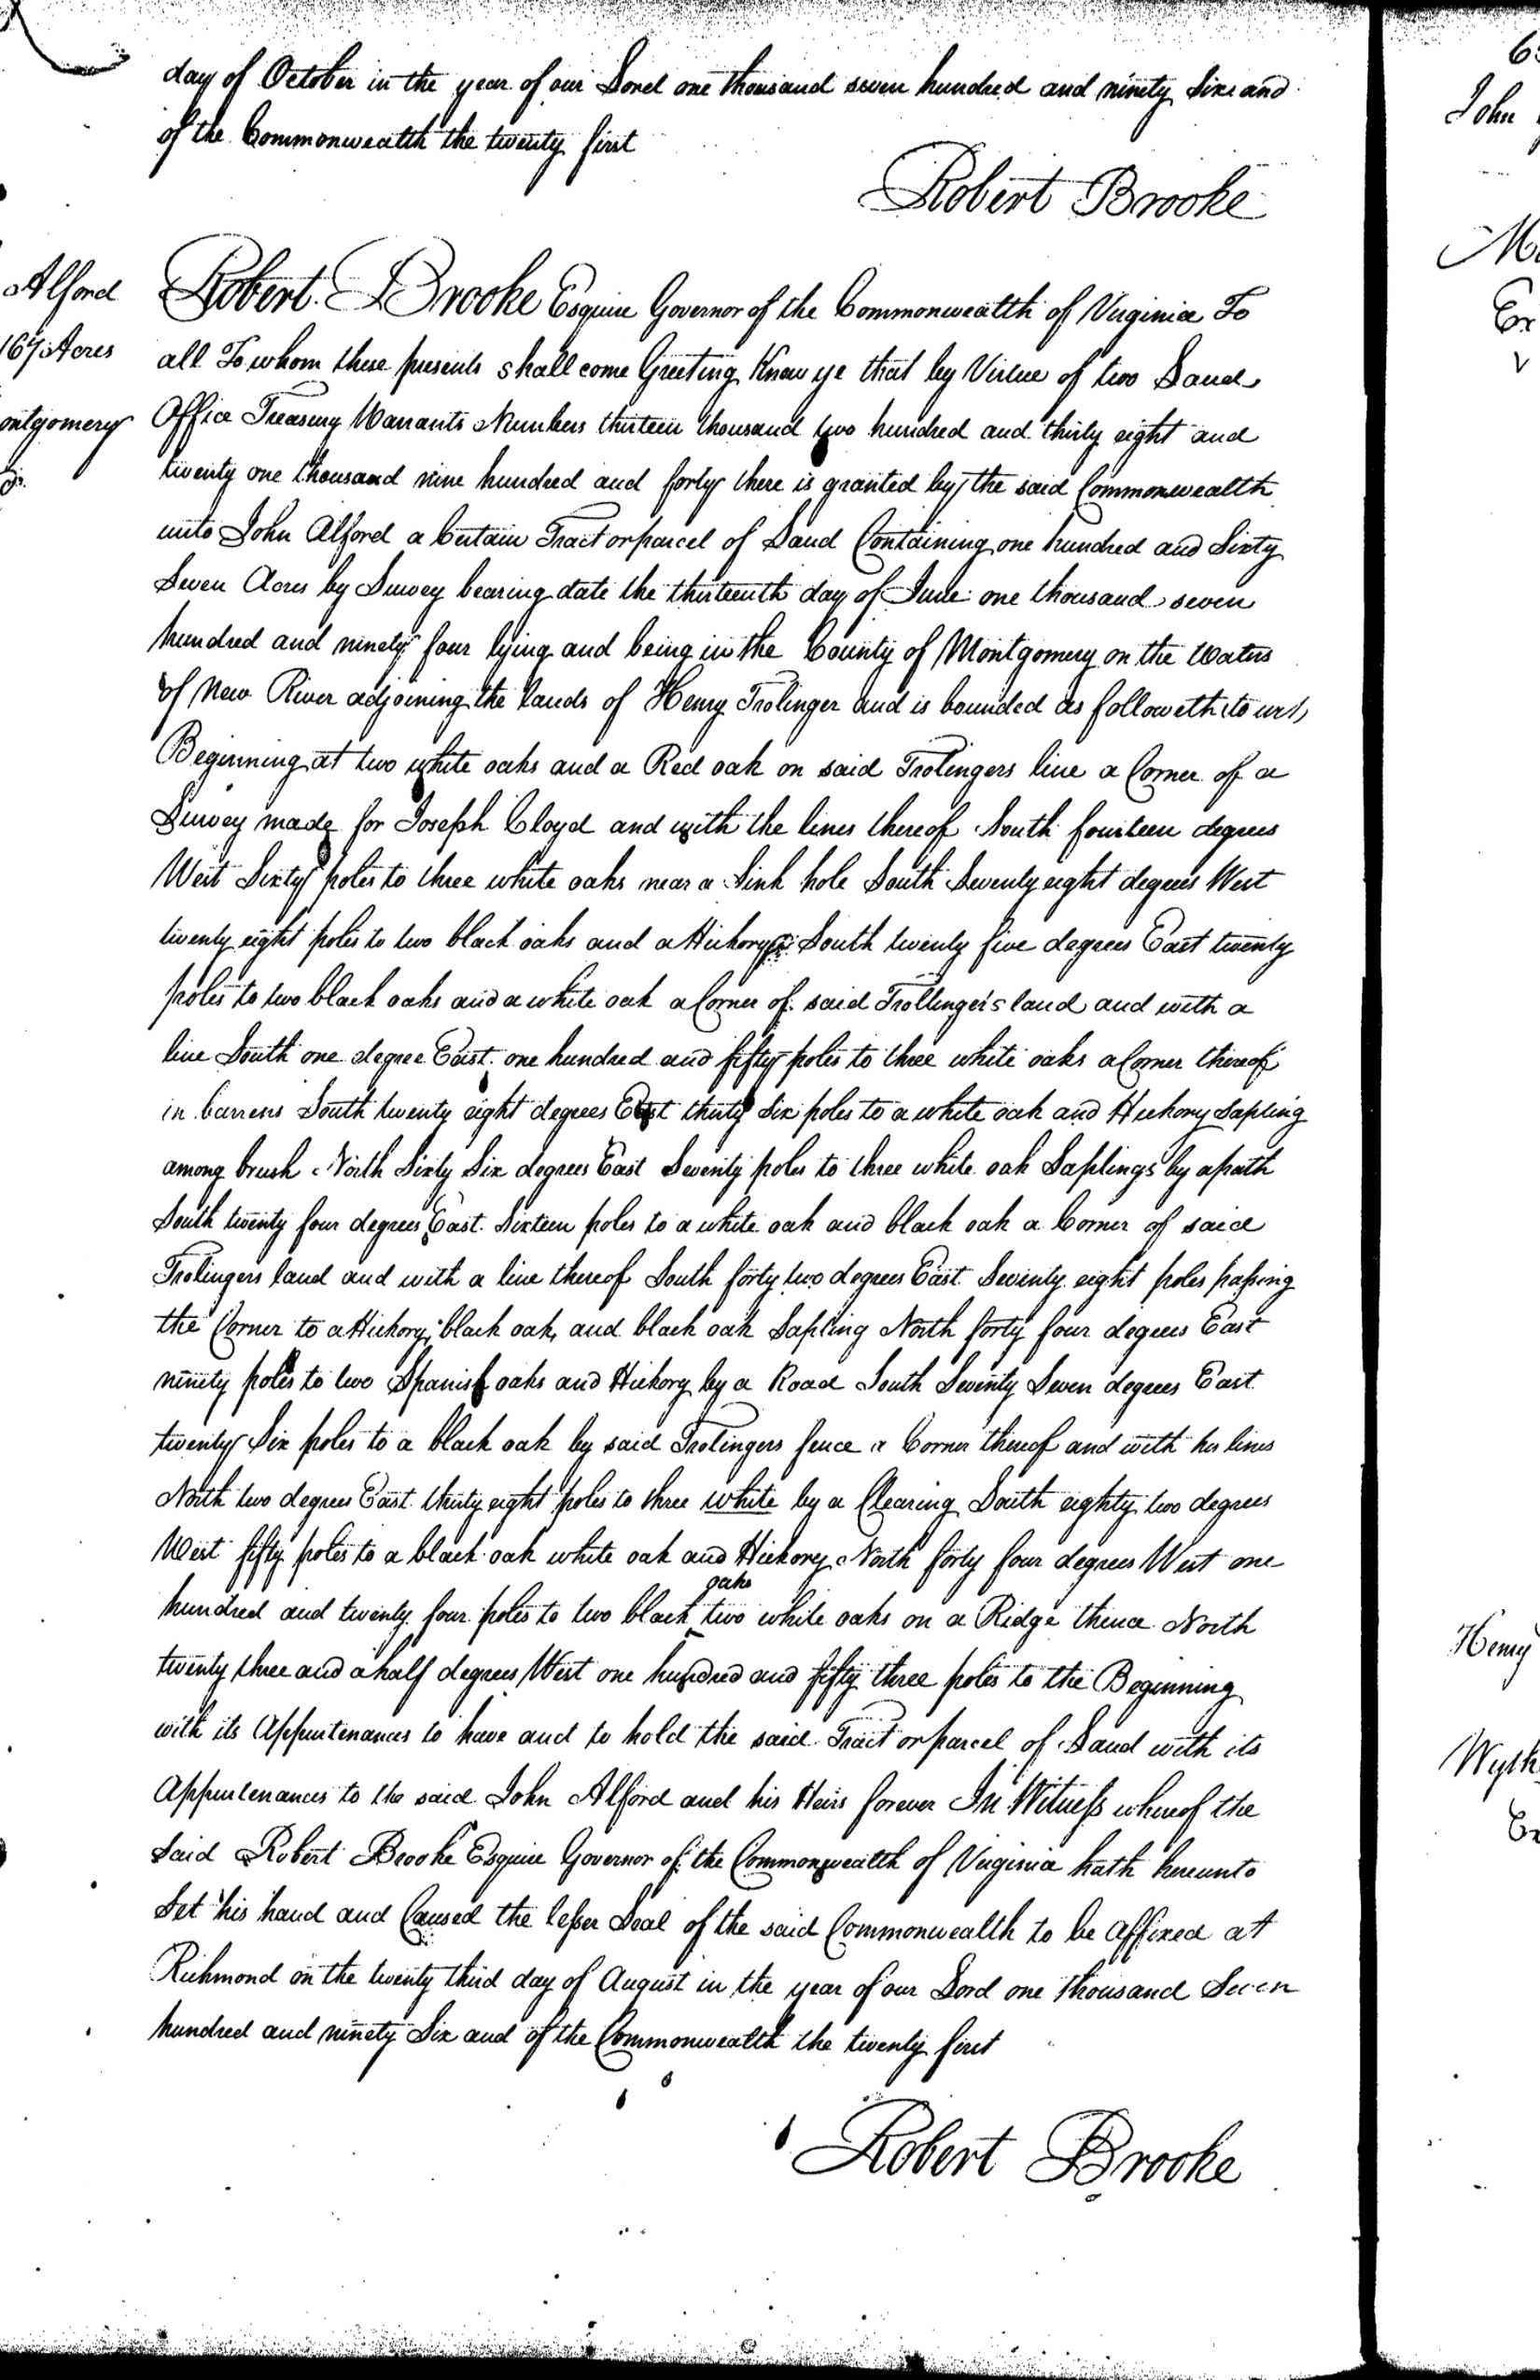 day of October in the year of our Lord one thousand seven hundred and ninety Six and
of the Commonwealth the twenty first
Robert Brooke
Alford
167 Acres
ontgomery
Robert Brooke Esquire Governor of the Commonwealth of Virginia To
all To whom these presents shall come Greeting Know ye that by Virtue of two Land
Office Treasury Warrants Numbers thirteen thousand two hundred and thirty eight and
twenty one thousand nine hundred and forty there is granted by the said Commonwealth
unto John Alford a Certain Tract or parcel of Land Containing one hundred and Sixty
Seven Acres by Survey bearing date the thirteenth day of June one thousand seven
hundred and ninety four lying and being in the County of Montgomery on the Waters
of New River adjoining the lands of Henry Trolinger and is bounded as followeth to wit
Beginning at two white oaks and a Red oak on said Trolingers line a Corner of a
Survey made for Joseph Cloyd and with the lines thereof South fourteen degrees
West Sixty poles to three white oaks near a Sink hole South Seventy eight degrees West
twenty eight poles to two black oaks and a Hickory South twenty five degrees East twenty
poles to two black oaks and a white oak a Corner of said Trollinger's land and with a
line South one degree East one hundred and fifty poles to three white oaks a Corner thereof
in barrens South twenty eight degrees East thirty Six poles to a white oak and Hickory Sapling
among brush North Sixty Six degrees East Seventy poles to three white oak Saplings by a path
South twenty four degrees East Sixteen poles to a white oak and black oak a Corner of said
Trolingers land and with a line thereof South forty two degrees East Seventy eight poles passing
the Corner to a Hickory, black oak, and black oak Sapling North forty four degrees East
ninety poles to two Spanish oaks and Hickory by a Road South Seventy Seven degrees East
twenty Six poles to a black oak by said Trolingers fence a Corner thereof and with his lines
North two degrees East thirty eight poles to three white by a Clearing South eighty two degrees
West fifty poles to a black oak white oak and Hickory North forty four degrees West one
oaks
hundred and twenty four poles to two black two white oaks on a Ridge thence North
twenty three and a half degrees West one hundred and fifty three poles to the Beginning
with its Appurtenances to have and to hold the said Tract or parcel of Land with its
Appurtenances to the said John Alford and his Heirs forever In Witness whereof the
Said Robert Brooke Esquire Governor of the Commonwealth of Virginia hath hereunto
Set his hand and Caused the lesser Seal of the said Commonwealth to be affixed at
Richmond on the twenty third day of August in the year of our Lord one thousand Seven
hundred and ninety Six and of the Commonwealth the twenty first
Robert Brooke
John
Henry